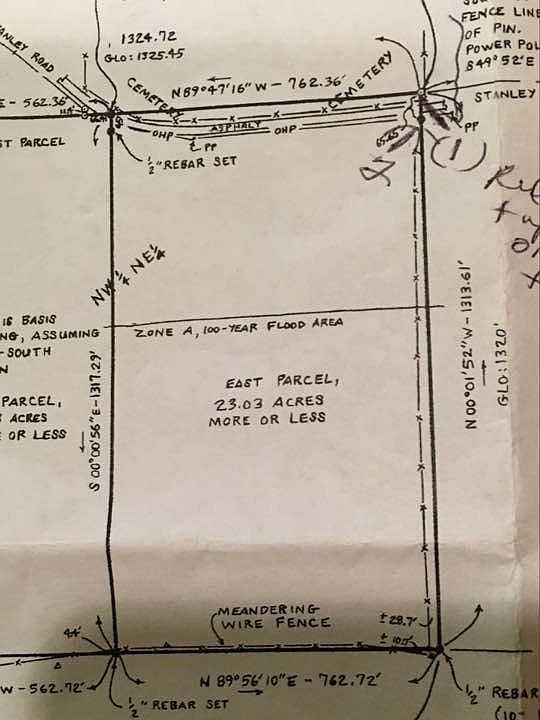 FENCE LINE
OF PIN.
POWER POL
S49°52'E
1324.72
GLO: 1325.45
STANLEY ROAD
CEMETERY
N89°47'16"W - 762.36'
CEMETERY
STANLEY
E - 562.36'
ASPHALT
OHP
OHP
PP
PP
65.65
ST PARCEL
1/2" REBAR SET
(1)
NW 1/4 NE 1/4
16 BASIS
NG, ASSUMING
-SOUTH
N
ZONE A, 100-YEAR FLOOD AREA
N 00°01'52"W - 1313.61'
GLO: 1320'
S 00°00'56"E - 1317.29'
EAST PARCEL,
23.03 ACRES
MORE OR LESS
PARCEL,
ACRES
E OR LESS
MEANDERING
WIRE FENCE
± 28.7'
± 10.5'
4.4'
W - 562.72'
N 89°56'10"E - 762.72'
1/2" REBAR SET
1/2" REBAR
(10-